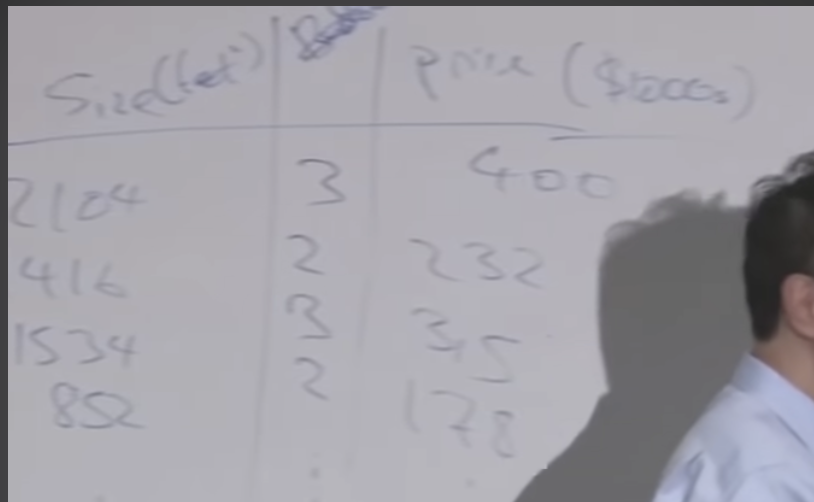 Size (feet²) price ($1000s)
2104 3 400
416 2 232
1534 3 315
852 2 178